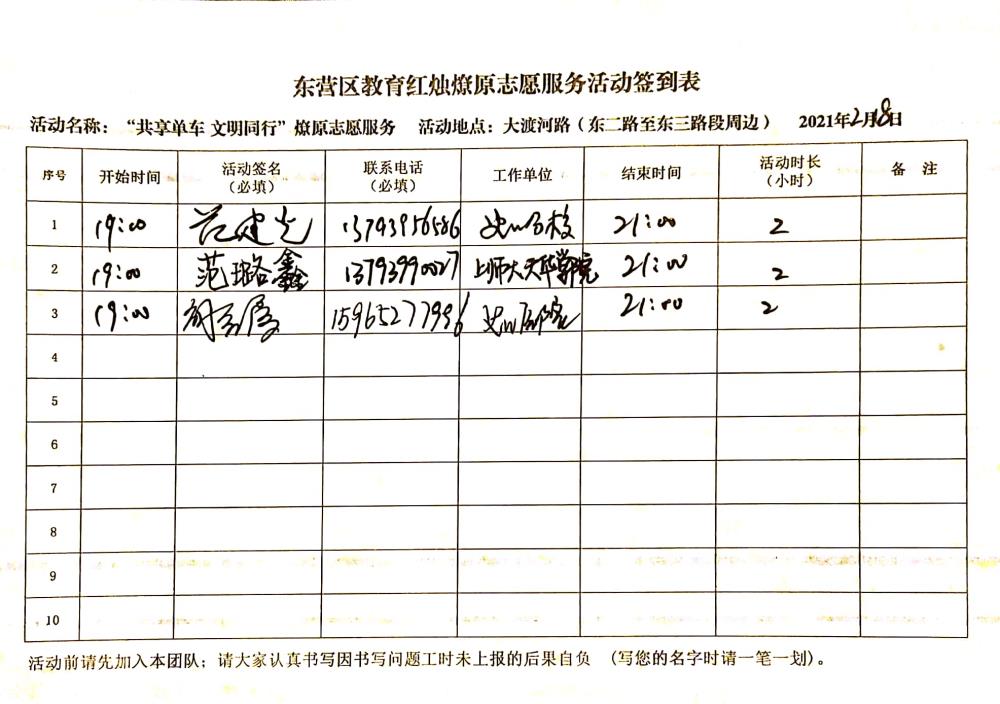 东营区教育红烛燎原志愿服务活动签到表
活动名称：“共享单车 文明同行”燎原志愿服务 活动地点：大渡河路（东二路至东三路段周边） 2021年2月18日
序号 开始时间 活动签名（必填） 联系电话（必填） 工作单位 结束时间 活动时长（小时） 备 注
1 19:00 范建光 13793956586 21:00 2
2 19:00 范璐鑫 13793990027 上师大天华学院 21:00 2
3 19:00 15965277996 21:00 2
4
5
6
7
8
9
10
活动前请先加入本团队；请大家认真书写因书写问题工时未上报的后果自负 （写您的名字时请一笔一划）。